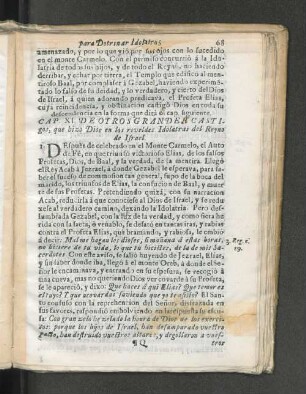 para Dotrinar Idolatras 68
amenazado, y por lo que vio por sus ojos con lo sucedido
en el monte Carmelo. Con el permiso concurrió á la Ido-
latria de todas sus hijos, y de todo el Reyno, no haciendo
derribar, y echar por tierra, el Templo que edificó al men-
tiroso Baal, por complacer á Gezabel, haviendo experimẽ-
tado lo falso de su deidad, y lo verdadero, y cierto del Dios
de Israel, á quien adorando predicara, el Profeta Elias,
cuya reincidencia, y obstinacion castigó Dios en toda su
descendencia en la forma que dirá el cap. supremo.
CAP. XI. DE OTROS GRANDES CASTI-
gos, que hizo Dios en los reveldes Idolatras del Reyno
de Israel.
1. Despues de celebrado en el Monte Carmelo, el Auto
de Fé, en que triunfó vitorioso Elias, de los falsos
Profetas, Dios, de Baal, y la verdad, de la mentira. Llegó
el Rey Acab á Jezrael, á donde Gezabel le esperava, para sa-
ber el suceso de conmocion tan general, supo de la boca del
marido, los triunfos de Elias, la confucion de Baal, y muer-
te de sus Profetas. Pretendiendo quizá, con su narracion
Acab, reducirla á que conociese al Dios de Israel, y se redu-
xese al verdadero camino, dexando la Idolatria. Pero desf-
lumbrada Gezabel, con la luz de la verdad, y como fiera he-
rida con la luz, ò veneno, ò rabia dentro de sus entrañas, y rabias
contra el Profeta Elias, que bramando, y rabiando, le embió
á decir: Mal me hagan los dioses, si mañana á estas horas,
no hiciere de tu vida, lo que tu hiciste, de la de mis Sa-
cerdotes. Con este aviso, se salio huyendo de Jezrael, Elias,
y su labor donde iba, llegó á el monte Oreb, á donde el Se-
ñor le encaminava, y entrando en su espesura, se recogió á
una cueva, mas no queriendo Dios ver encovado á su Profeta,
se le apareció, y dixo: Que haces á qui Elias? Que temor es
el tuyo? Y que aguardas haviendo que yo te asista? El San-
to confuso con la reprehension del Señor, disfrazada en
sus favores, respondió embolviendo en la respuesta su escu-
sa: Con gran zelo he zelado la honra de Dios de los exerci-
tos: porque los hijos de Israel, han desamparado vuestro
pacto, han destruido vuestros altares, y degollaron a vues-
tros
3. Reg. c.
19.
¶Q